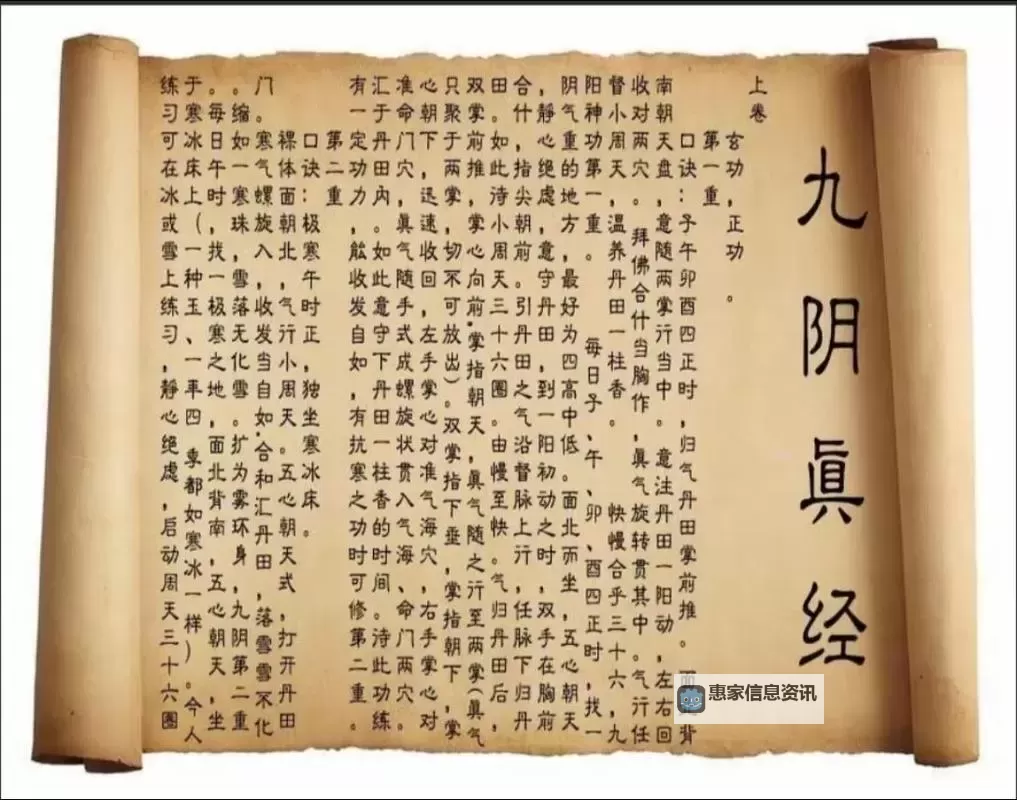 九阴眞经
上卷
玄功，正功。
第一重
口诀：子午卯酉四正时，归气丹田掌前推。背
南朝天盘，意随两掌行当中。意注丹田一阳动，左右回
收对两穴。拜佛合什当胸作，眞气旋转贯其中。气行任
督小周天，温养丹田一柱香。快慢合乎三十六，九
阳神功第一重。每日子、午、卯、酉四正时，找一
阴气重的地方，最好为四高中低。面北而坐，五心朝天
，静心绝虑，意守丹田，到一阳初动之时，双手在胸前
合什，指尖朝前。引丹田之气沿督脉上行，任脉下归丹
田。如此待小周天三十六圈。由慢至快。气归丹田后，
双掌前推，掌心向前.掌指朝天，眞气随之行至两掌(眞气
只聚于两掌，切不可放出)。双掌指下垂，掌指朝下，掌
心朝下，迅速收回，左手掌心对准气海穴，右手掌心对
准命门穴，眞气随手式成螺旋状贯入气海、命门两穴。
汇于丹田内。如此意守下丹田一柱香的时间。待此功练
有一定功力，能收发自如，有抗寒之功时可修第二重。
第二重
口诀：极寒午时正，独坐寒冰床。
裸体面朝北，气行小周天。五心朝天式，打开丹田
门。寒气螺旋入，收发当自如.合和汇丹田，落雪雪不化
。缩如一寒珠，雪落无化雪。扩为雾环身，九阴第二重
。每日午时，找一极寒之地，面北背南，五心朝天，坐
于寒冰床上(一种玉、一年四季都如寒冰一样)。今人
练习可在冰或雪上练习，静心绝虑，启动周天三十六圈
惠家信息资讯